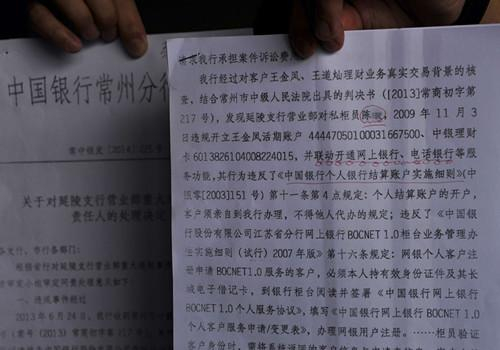 中国银行常州分行
常中银发〔2014〕225号
关于对延陵支行营业部重大
责任人的处理决定
各支行、市行各部门:
一、违规事件经过
2013年6月24日,我行收到常州
请求我行承担案件诉讼费
我行经过对客户王金凤、王道灿理财业务真实交易背景的核
查、结合常州市中级人民法院出具的判决书([2013]常商初字第
217号),发现延陵支行营业部对私柜员陈 ,2009年11月3
日违规开立王金凤活期账户 44447050100031667500、中银理财
卡6013826104008224015,并联动开通网上银行、电话银行等服
务功能,其行为违反了《中国银行个人银行结算账户实施细则》(中
银零[2003]151号)第十一条第4点规定:个人结算账户的开户,
客户须亲自到我行办理,不得他人代办的规定;违反了《中国银
行股份有限公司江苏省分行网上银行BOC1.0柜台业务管理办
法实施细则(试行)2007年版》第十六条规定:网银个人客户注
册申请BOCNET1.0服务的客户,必须本人持有效身份证件及其长
城电子借记卡,到银行柜台阅读并签署《中国银行网上银行
BOCNET1.0个人服务协议》,填写《中国银行网上银行BOCNET1.0
个人客户服务申请/变更表》,办理网银用户注册。……柜员验证
客户身份时,需将系统返回的客户